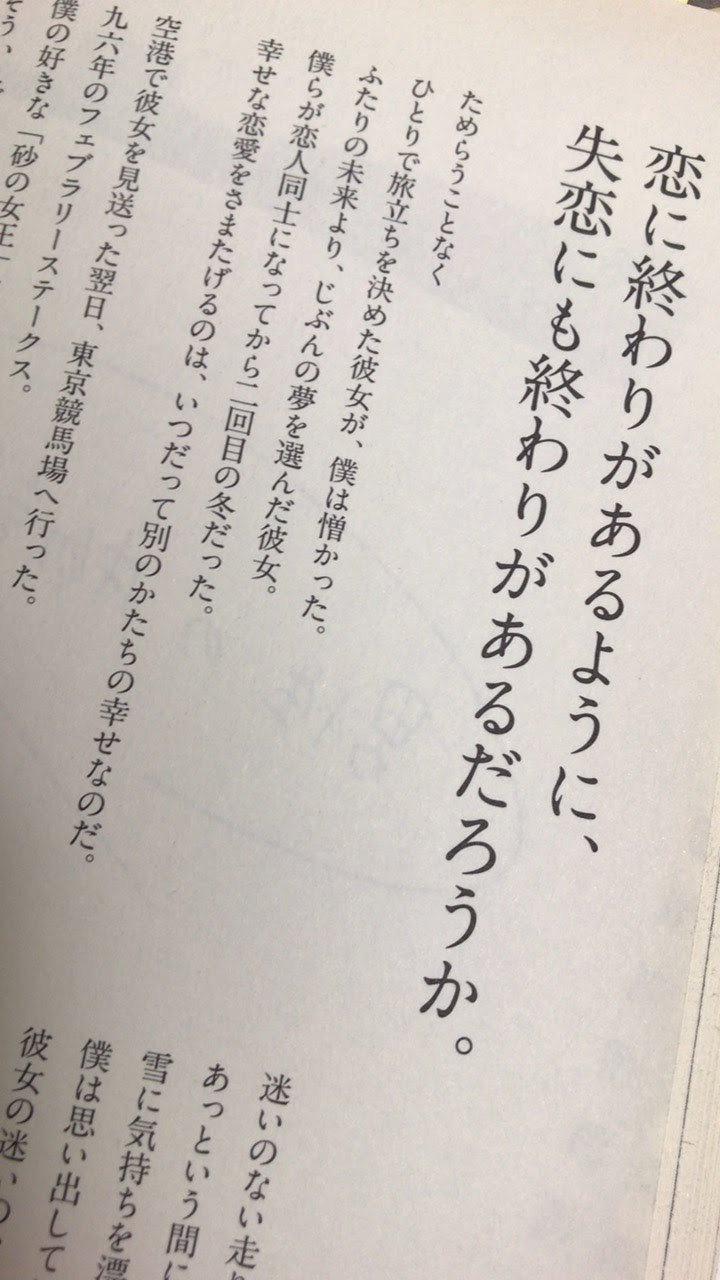 恋に終わりがあるように、
失恋にも終わりがあるだろうか。
ためらうことなく
ひとりで旅立ちを決めた彼女が、僕は憎かった。
ふたりの未来より、じぶんの夢を選んだ彼女。
僕らが恋人同士になってから二回目の冬だった。
幸せな恋愛をさまたげるのは、いつだって別のかたちの幸せなのだ。
空港で彼女を見送った翌日、東京競馬場へ行った。
九六年のフェブラリーステークス。
僕の好きな「砂の女王」
そう、
迷いのない走り
あっという間に
雪に気持ちを漂
僕は思い出して
彼女の迷いの